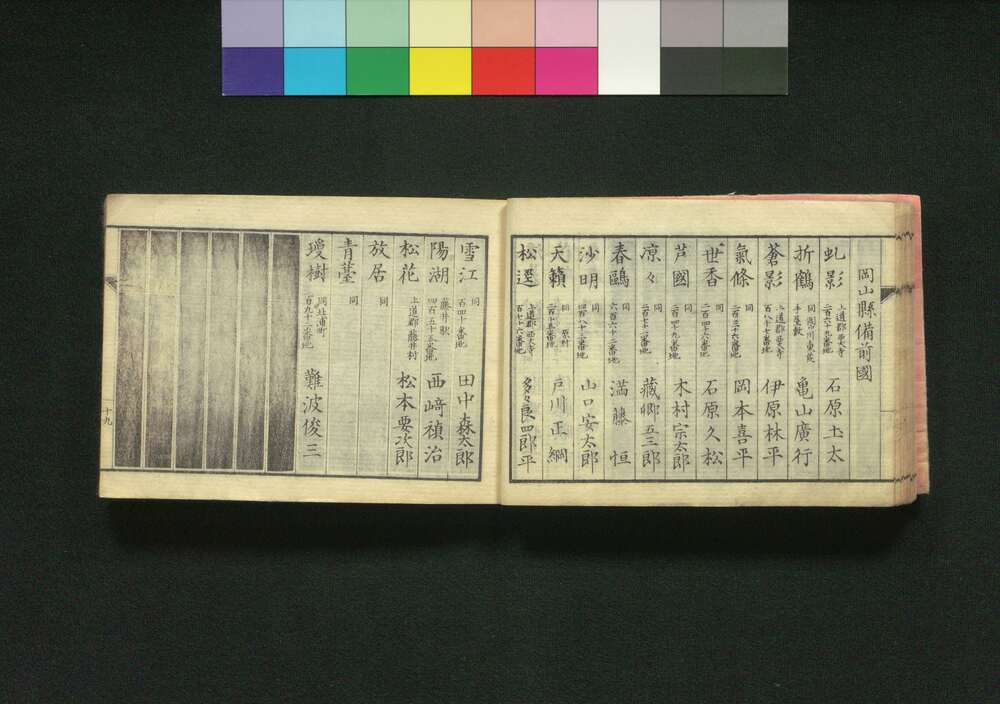 岡山縣備前國
虬影 上道郡西大寺 二百六十九番地 石原圡太
折鶴 亀山廣行
蒼影 上道郡西大寺 百八十七番地 伊原林平
氣條 同 二百三十六番地 岡本喜平
世香 同 二百四十六番地 石原久松
芦國 同 二百四十九番地 木村宗太郎
凉々 同 二百七十二番地 藏郷五三郎
春鷗 同 六百六十二番地 満藤恒
沙明 同 四百八十二番地 山口安太郎
天籟 同 原村 二百十五番地 戸川正綱
松遅 上道郡西大寺 百七十六番地 多々良四郎平
雪江 同 百四十番地 田中森太郎
陽湖 藤井駅 四百五十五番地 西﨑禎治
松花 上道郡藤井村 松本要次郎
放居 同
青臺 同
瓊樹 同北浦町 百九十二番地 難波俊三
十九